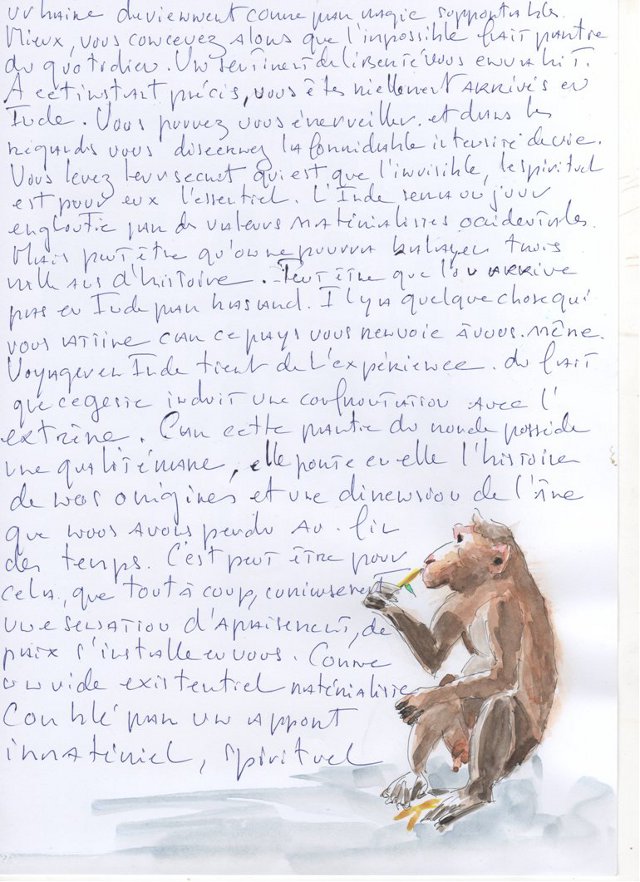 urbaine deviennent comme par magie supportables.
Mieux, vous concevez alors que l'impossible fait partie
du quotidien. Un sentiment de liberté vous envahit.
A cet instant précis, vous êtes réellement ARRIVÉS en
Inde. Vous pouvez vous émerveiller. et dans les
regards vous discernez la formidable intensité de vie.
Vous levez leur secret qui est que l'invisible, le spirituel
est pour eux l'essentiel. L'Inde sera un jour
engloutie par des valeurs matérialistes occidentales.
Mais peut être qu'on ne pourra balayer trois
mille ans d'histoire. Peut être que l'on ARRIVE
pas en Inde par hasard. Il y a quelque chose qui
vous attire car ce pays vous renvoie à vous-même.
Voyager en Inde tient de l'expérience. du fait
que ce geste induit une confrontation avec l'
extrême. Car cette partie du monde possède
une qualité rare, elle porte en elle l'histoire
de nos origines et une dimension de l'âme
que nous avons perdu au fil
des temps. C'est peut être pour
cela, que tout à coup, curieusement
une sensation d'apaisement, de
paix s'installe en vous. Comme
un vide existentiel matérialiste
comblé par un apport
immatériel, spirituel